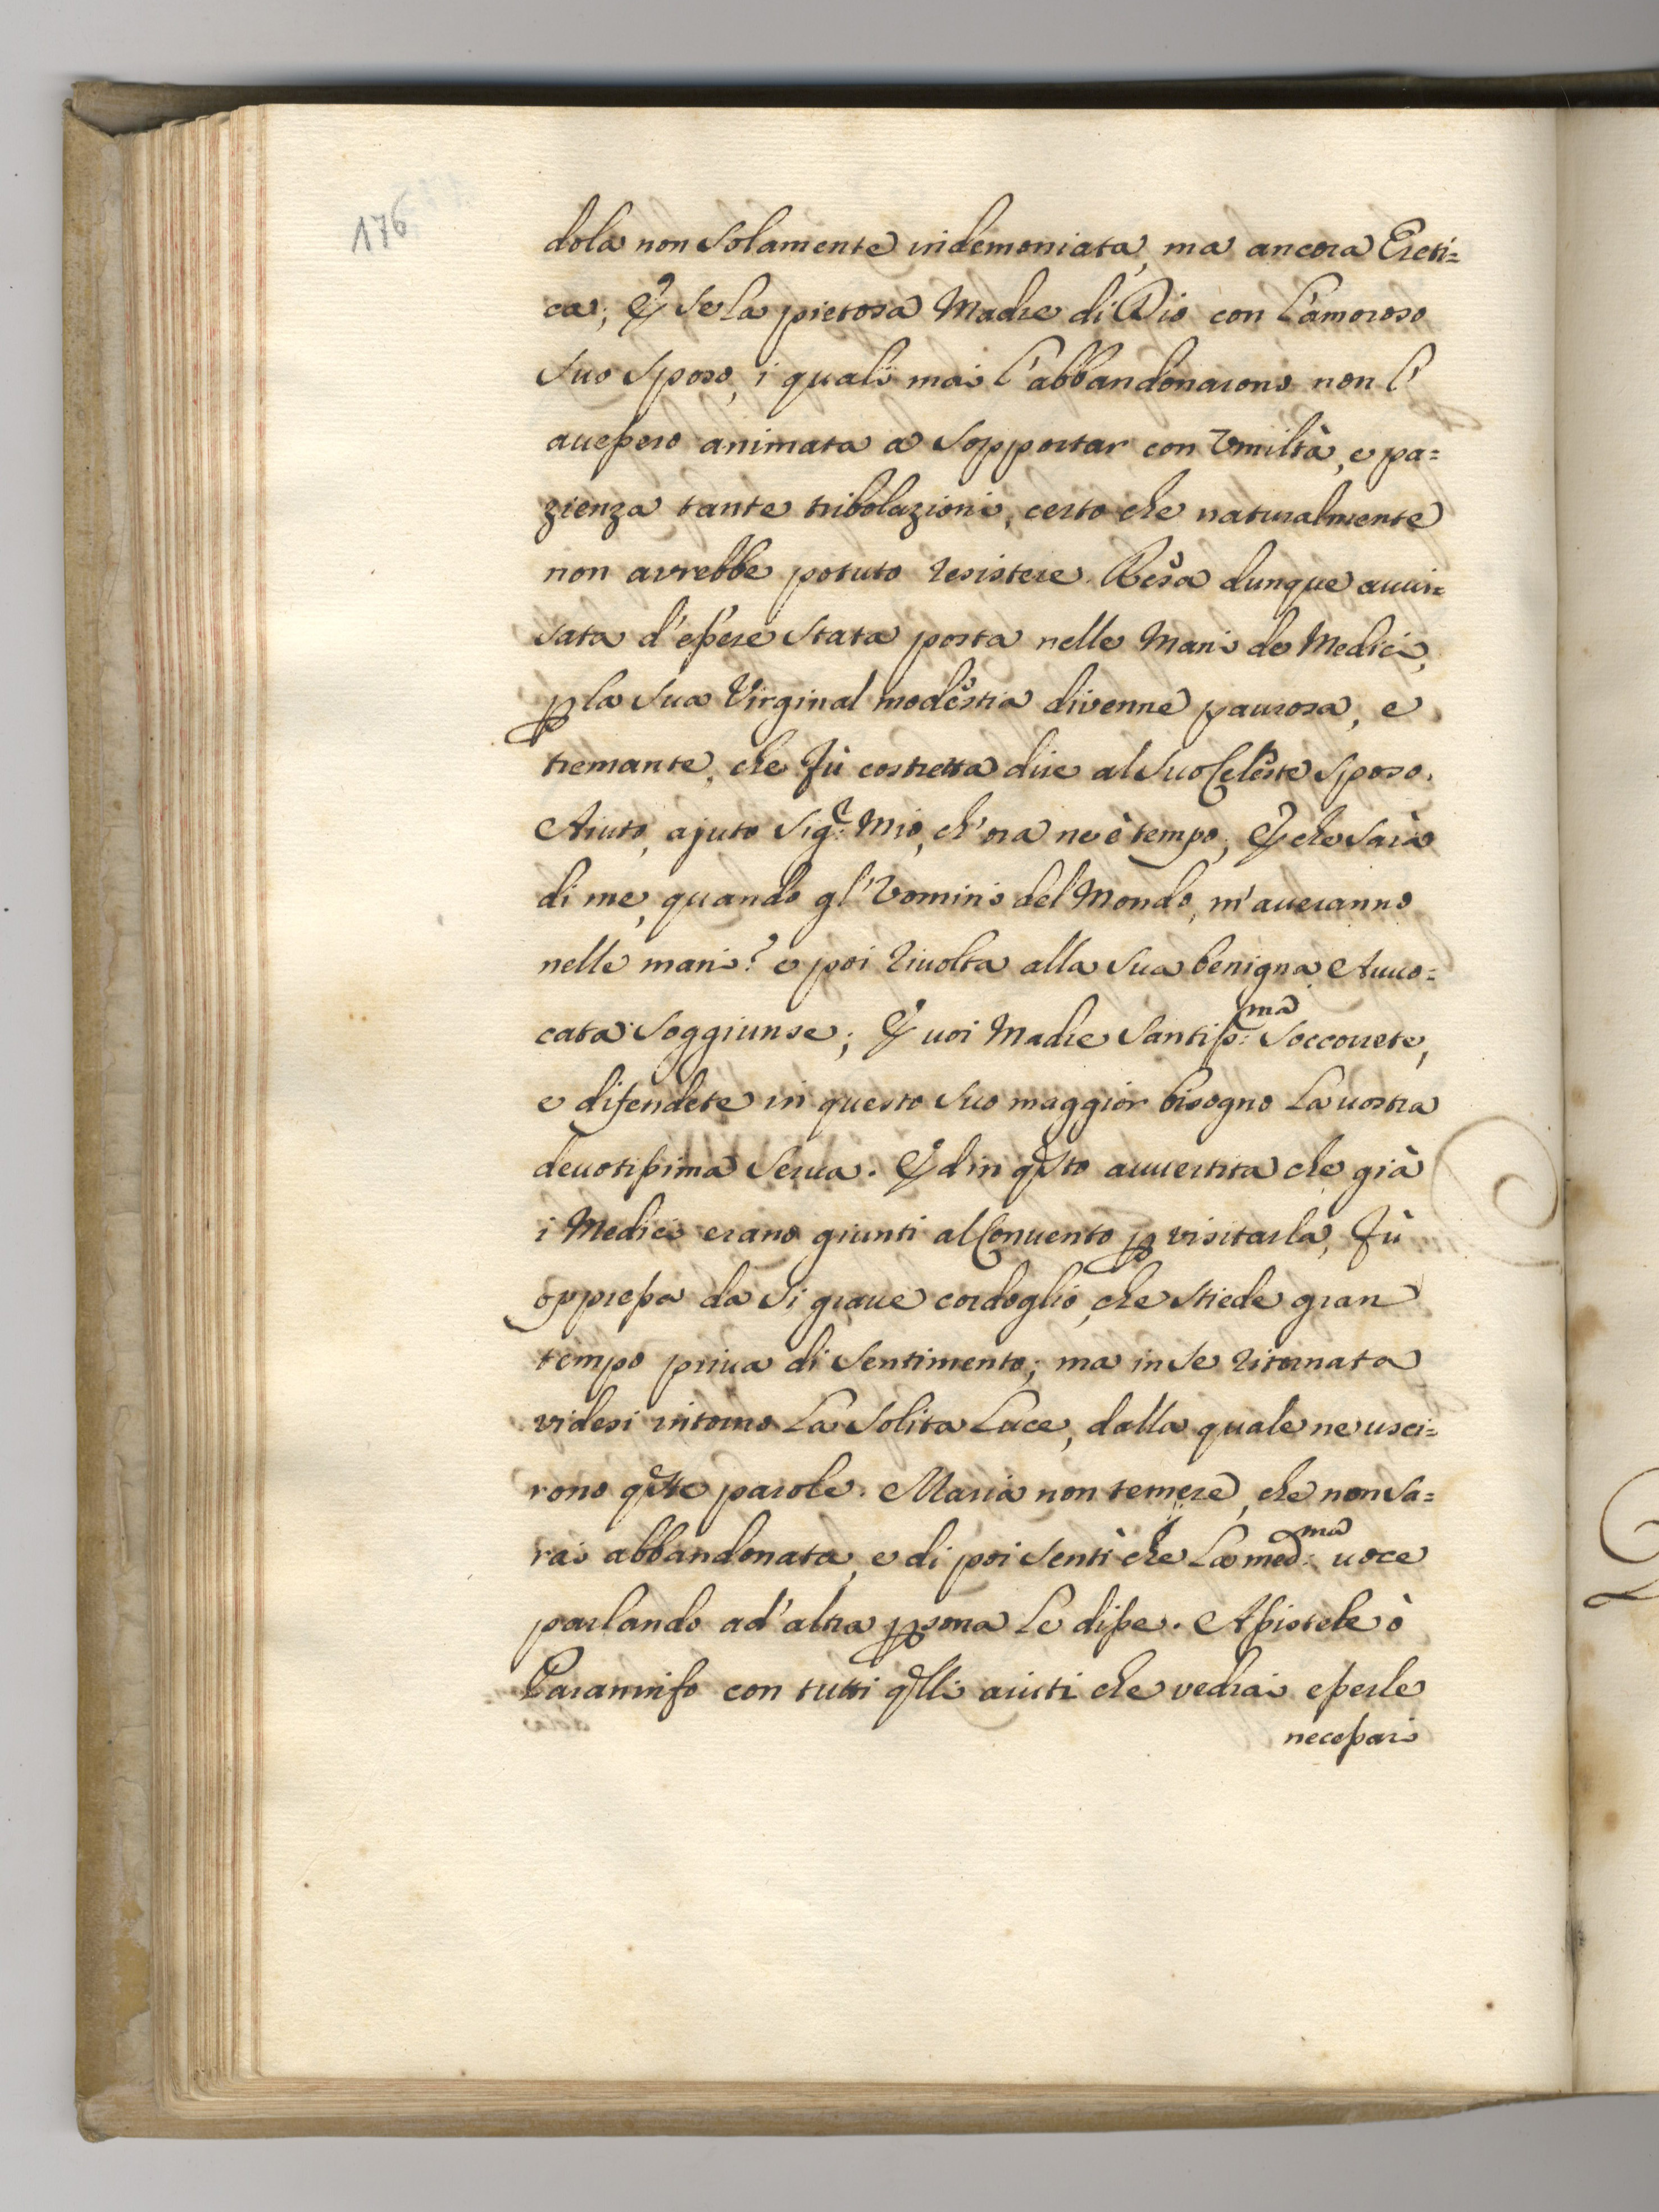 176
dola non solamente indemoniata, ma ancora Ereti=
ca; E se la pietosa Madre di Dio con l'amoroso
suo sposo, i quali mai l'abbandonarono non l'
auessero animata a sopportar con Vmiltà, e pa=
zienza tante tribolazioni, certo che naturalmente
non avrebbe potuto resistere. Resa dunque auui=
sata d'essere stata posta nelle Mani de Medici,
p la sua Virginal modestia divenne paurosa, e
tremante, che fù costretta dire al suo Celeste sposo.
Aiuto, ajuto Sig:r Mio, ch'ora ne è tempo; E che sarà
di me, quando gl'Vomini del Mondo, m'aueranno
nelle mani? e poi riuolta alla sua benigna Auuo=
cata soggiunse; E uoi Madre Santiss:ma soccorrete,
e difendete in questo suo maggior bisogno la uostra
deuotissima Serua. Ed in qsto auuertita che già
i Medici erano giunti al Conuento p visitarla, fù
oppressa da si graue cordoglio, che stiede gran
tempo priua di sentimento; ma in se ritornata
videsi intorno la solita Luce, dalla quale ne usci=
rono qste parole. Maria non temere, che non sa=
rai abbandonata, e di poi sentì che la med:ma uoce
parlando ad'altra psona le disse. Assistete ò
Paraninfo con tutti qlli aiuti che vedrai esserle
necessari